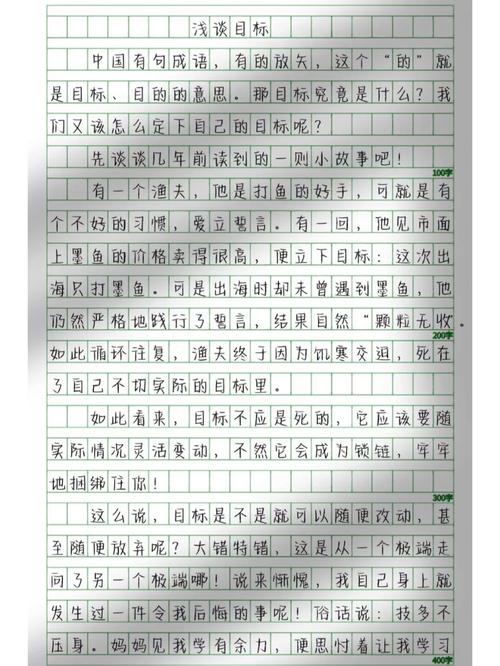 浅谈目标
中国有句成语，有的放矢，这个“的”就
是目标、目的的意思。那目标究竟是什么？我
们又该怎么定下自己的目标呢？
先谈谈几年前读到的一则小故事吧！
100字
有一个渔夫，他是打鱼的好手，可就是有
个不好的习惯，爱立誓言。有一回，他见市面
上墨鱼的价格卖得很高，便立下目标：这次出
海只打墨鱼。可是出海时却未曾遇到墨鱼，他
仍然严格地践行了誓言，结果自然“颗粒无收”．
200字
如此循环往复，渔夫终于因为饥寒交迫，死在
了自己不切实际的目标里。
如此看来，目标不应是死的，它应该要随
实际情况灵活变动，不然它会成为锁链，牢牢
地捆绑住你！
300字
这么说，目标是不是就可以随便改动，甚
至随便放弃呢？大错特错，这是从一个极端走
向了另一个极端哪！说来惭愧，我自己身上就
发生过一件令我后悔的事呢！俗话说：技多不
压身。妈妈见我学有余力，便思忖着让我学习
400字